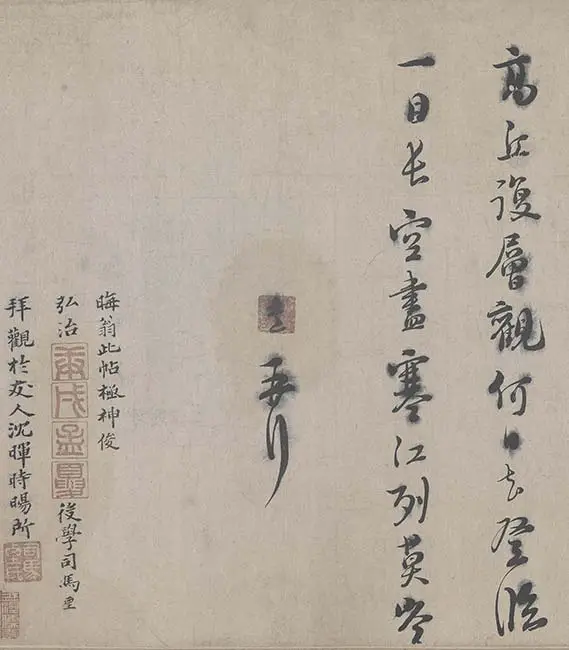 高丘復層觀何日去登臨
一目長空盡寒江列莫岑
晦翁此帖極神俊
弘治庚戌孟夏後學司馬垔
拜觀於友人沈暉時暘所